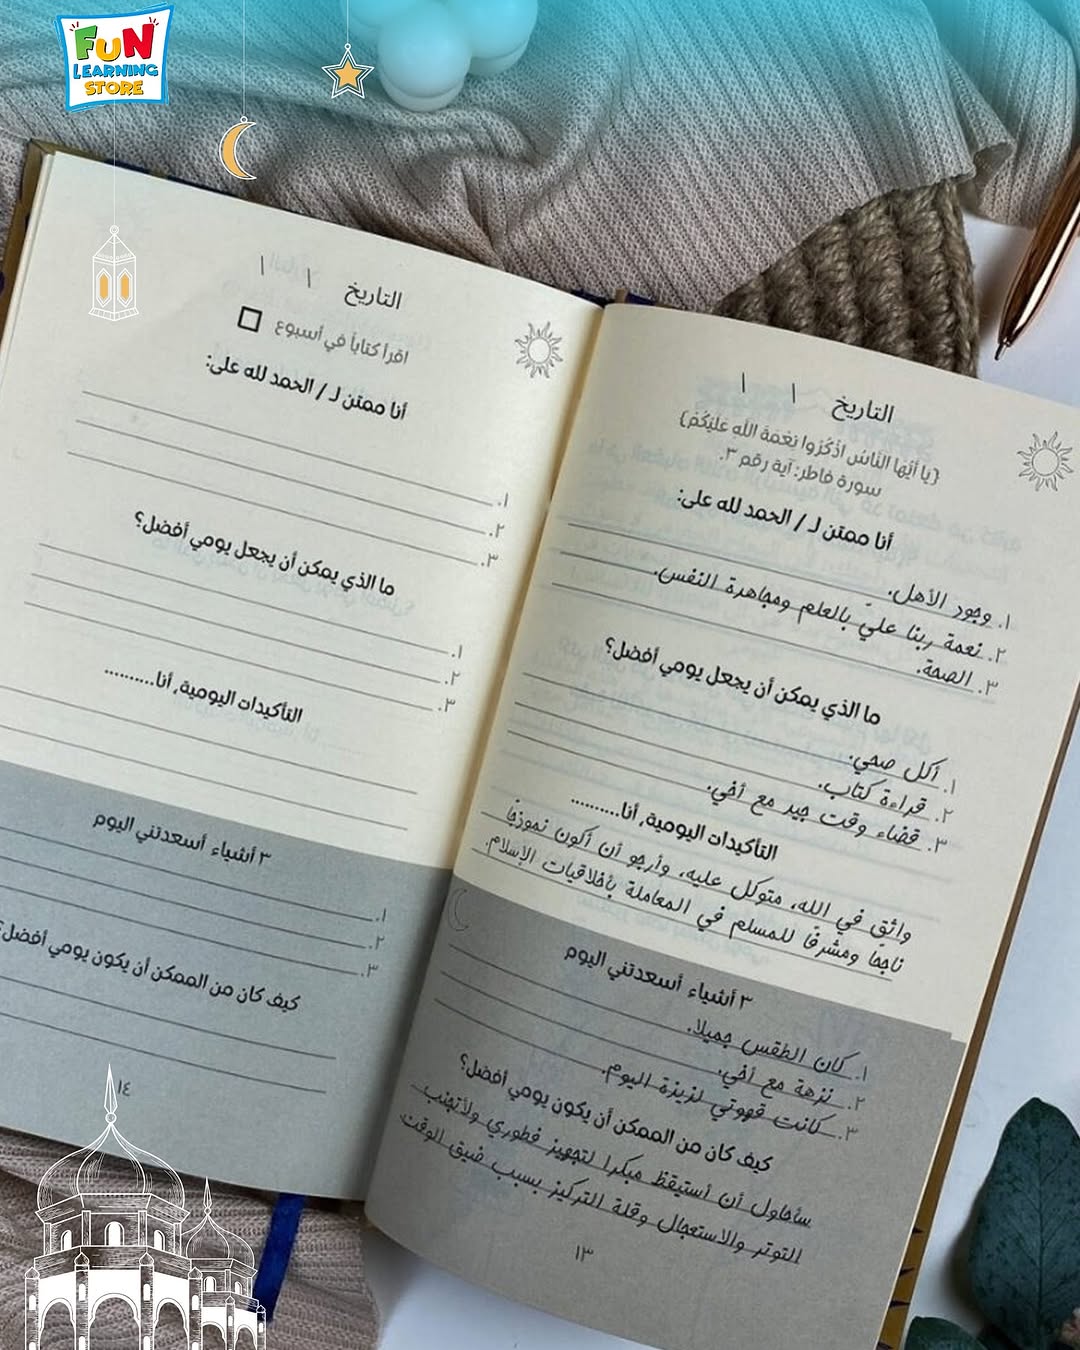 FUN
LEARNING
STORE
التاريخ / /
{يا أيها الناس اذكروا نعمة الله عليكم}
سورة فاطر: آية رقم ٣.
أنا ممتن لـ / الحمد لله على:
١. وجود الأهل.
٢. نعمة ربنا عليّ بالعلم ومجاهدة النفس.
٣. الصحة.
ما الذي يمكن أن يجعل يومي أفضل؟
١. أكل صحي.
٢. قراءة كتاب.
٣. قضاء وقت جيد مع أخي.
التأكيدات اليومية, أنا..........
واثق في الله، متوكل عليه، وأرجو أن أكون نموذجًا
ناجحًا ومشرفًا للمسلم في المعاملة بأخلاقيات الإسلام.
٣ أشياء أسعدتني اليوم
١. كان الطقس جميلا.
٢. نزهة مع أخي.
٣. كانت قهوتي لذيذة اليوم.
كيف كان من الممكن أن يكون يومي أفضل؟
سأحاول أن أستيقظ مبكرا لتجهيز فطوري ولأتجنب
التوتر والاستعجال وقلة التركيز بسبب ضيق الوقت
١٣
التاريخ / /
اقرأ كتاباً في أسبوع
أنا ممتن لـ / الحمد لله على:
١.
٢.
٣.
ما الذي يمكن أن يجعل يومي أفضل؟
١.
٢.
٣.
التأكيدات اليومية, أنا..........
٣ أشياء أسعدتني اليوم
١.
٢.
٣.
كيف كان من الممكن أن يكون يومي أفضل؟
١٤